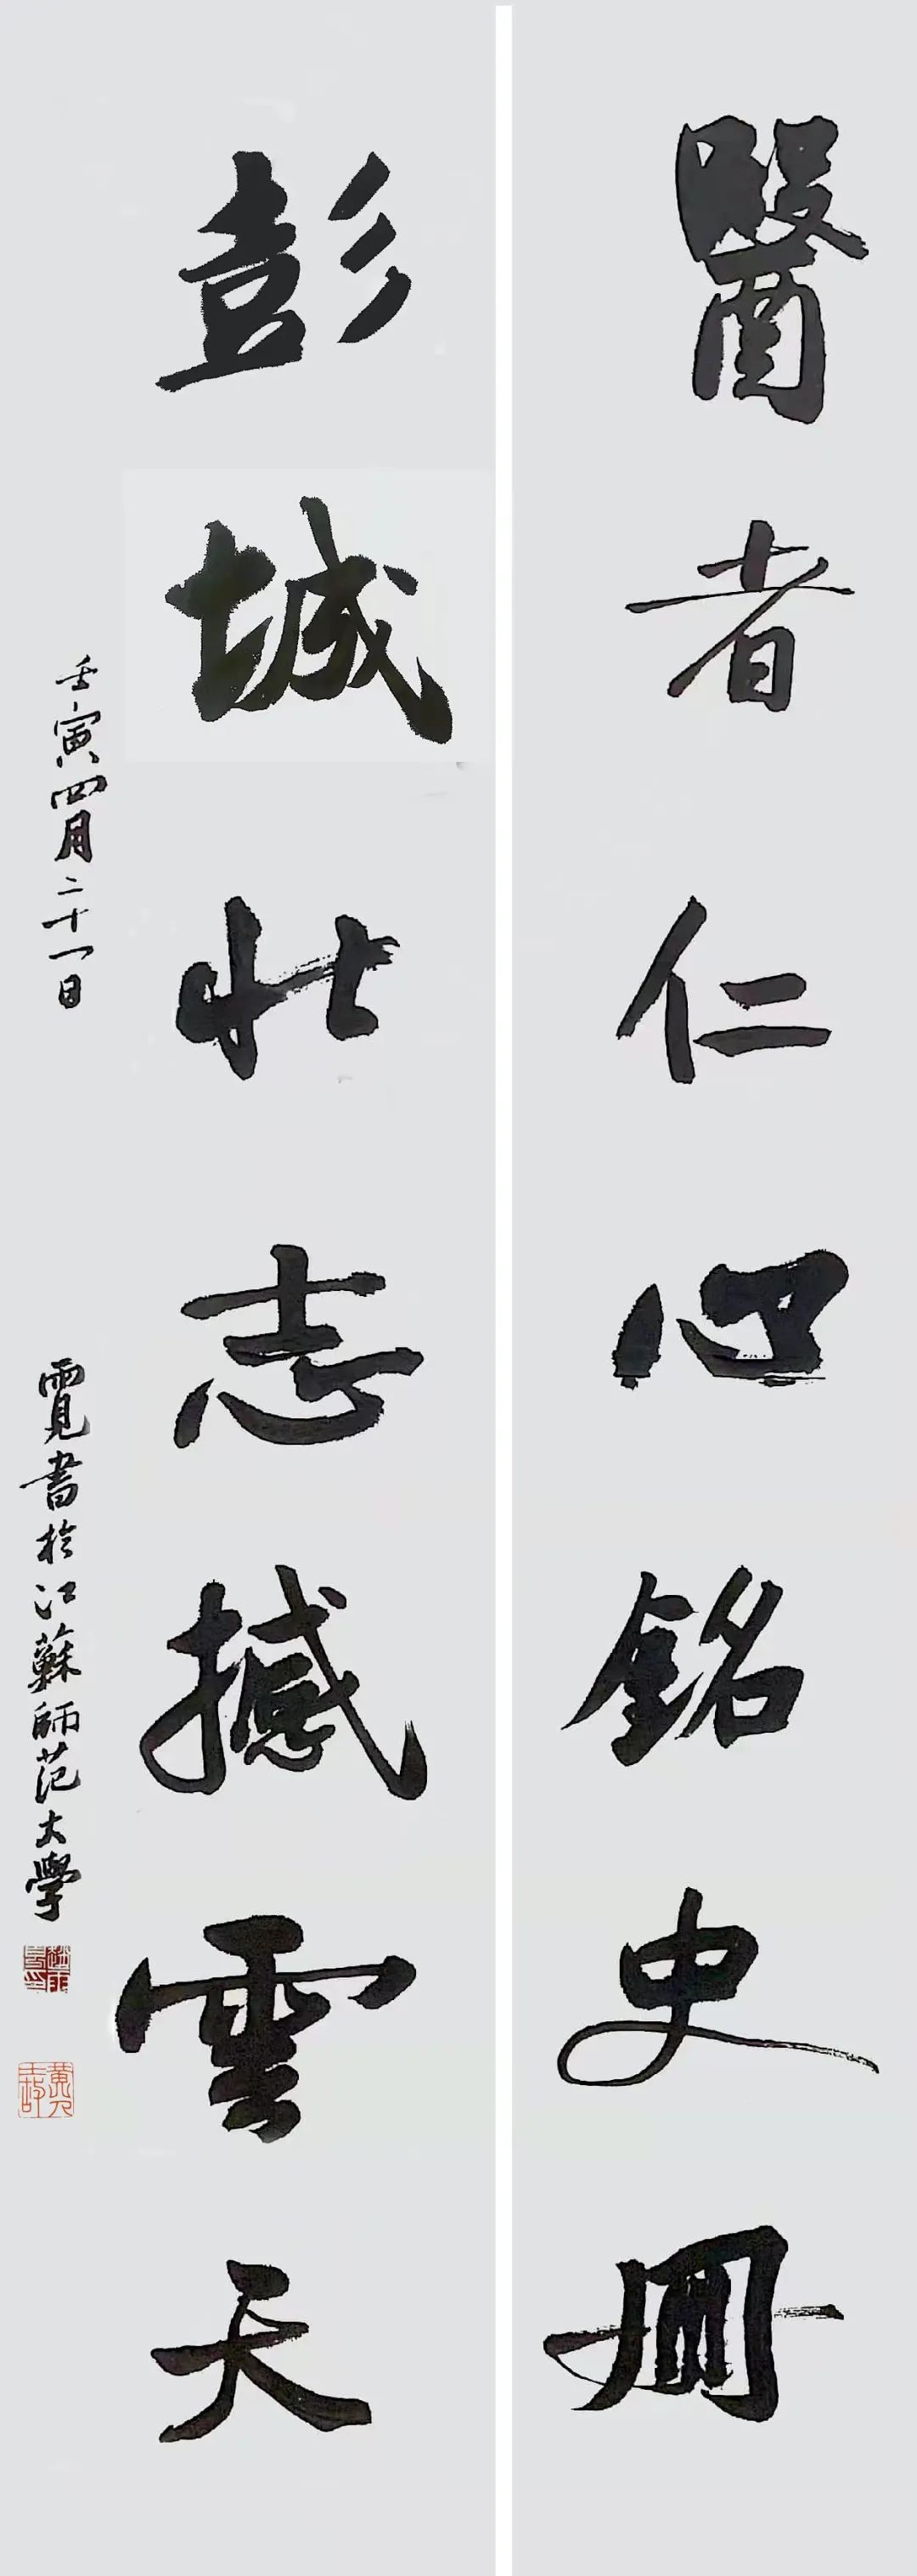 醫者仁心銘史冊
彭城壯志撼雲天
壬寅四月二十一日
霓書於江蘇師范大學